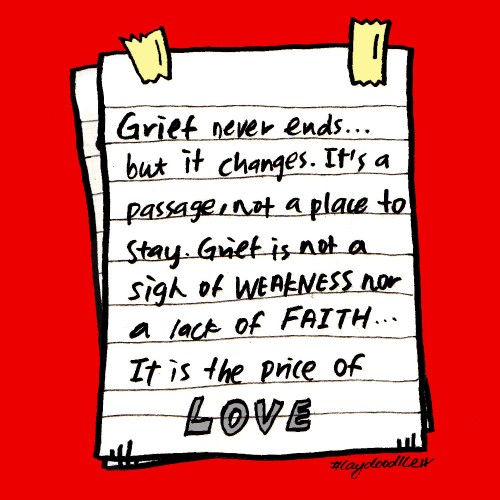 Grief never ends...
but it changes. It's a
passage, not a place to
stay. Grief is not a
sign of WEAKNESS nor
a lack of FAITH...
It is the price of
LOVE